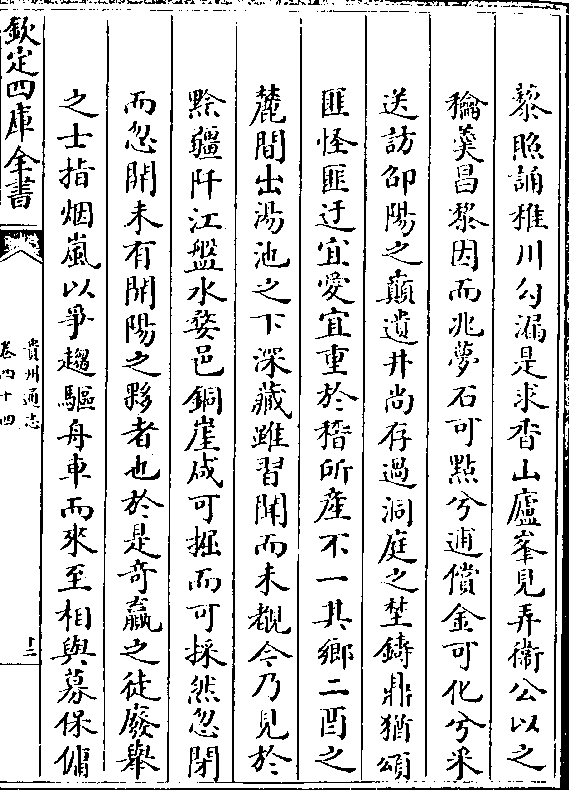 藜照誦稚川勾漏是求杏山廬峯見弄衞公以之
𥡴羹昌黎因而兆夢石可點兮逋償金可化兮采
送訪邵陽之巔遺井尚存過洞庭之埜鑄鼎猶頌
匪怪匪迂宜愛宜重於稽所産不一其鄉二酉之
麓間出湯池之下深藏雖習聞而未覩今乃見於
黔疆阡江盤水婺邑銅崖咸可掘而可採然忽閉
而忽開未有開陽之夥者也於是奇贏之徒廢舉
之士指烟嵐以爭趨驅舟車而來至相與募保傭
欽定四庫全書
貴州通志
卷四十四
十二